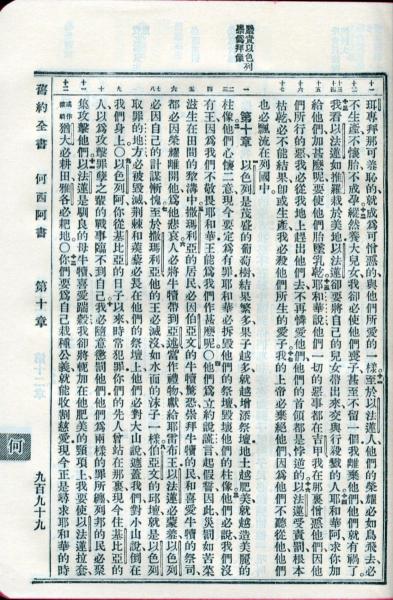 嚴責以色列
珥專拜那可羞恥的就成爲可憎惡的與他們所愛的一樣至於以法蓮人他們的榮耀必如鳥飛去必
不生產不懷胎不成孕縱然養大兒女我卻必使他們喪子甚至不留一個我離棄他們他們就有禍了
我看以法蓮如推羅栽於美地以法蓮卻要將自己的兒女帶出來交與行殺戮的人耶和華阿求你加
給他們加甚麼呢要使他們胎墜乳乾耶和華說他們一切的惡事都在吉甲我在那裏憎惡他們因他
們所行的惡我必從我地上趕出他們去不再憐愛他們他們的首領都是悖逆的以法蓮受責罰根本
枯乾必不能結果卽或生產我必殺他們所生的愛子我的上帝必棄絕他們因爲他們不聽從他們
也必飄流在列國中
第十章 以色列是茂盛的葡萄樹結果繁多果子越多就越增添祭壇地土越肥美就越造美麗的
柱像他們心懷二意現今要定爲有罪耶和華必拆毀他們的祭壇毀壞他們的柱像他們必說我們沒
有王因爲我們不敬畏耶和華王能爲我們作甚麼呢○他們爲立約說謊言起假誓因此災罰如苦菜
滋生在田間的犂溝中撒瑪利亞的居民必因伯亞文的牛犢驚恐崇拜牛犢的民和喜愛牛犢的祭司
都必因榮耀離開他爲他悲哀人必將牛犢帶到亞述當作禮物獻給耶雷布王以法蓮必蒙羞以色列
必因自己的計謀慚愧至於撒瑪利亞他的王必滅沒如水面的沫子一樣伯亞文的邱壇就是以色列
取罪的地方必被毀滅荊棘和蒺藜必長在他們的祭壇上他們必對大山說遮蓋我們對小山說倒在
我們身上○以色列阿你從基比亞的日子以來時常犯罪你們的先人曾站在那裏現今住基比亞的
人以爲攻擊罪孽之輩的戰事臨不到自己我必隨意懲罰他們他們爲兩樣的罪所纏列邦的民必聚
集攻擊他們以法蓮是馴良的母牛犢喜愛踹穀我卻將軛加在他肥美的頸項上我要使以法蓮拉套
猶大必耕田雅各必耙地○你們要爲自己栽種公義就能收割慈愛現今正是尋求耶和華的時
舊約全書 何西阿書 第十章
何
九百九十九